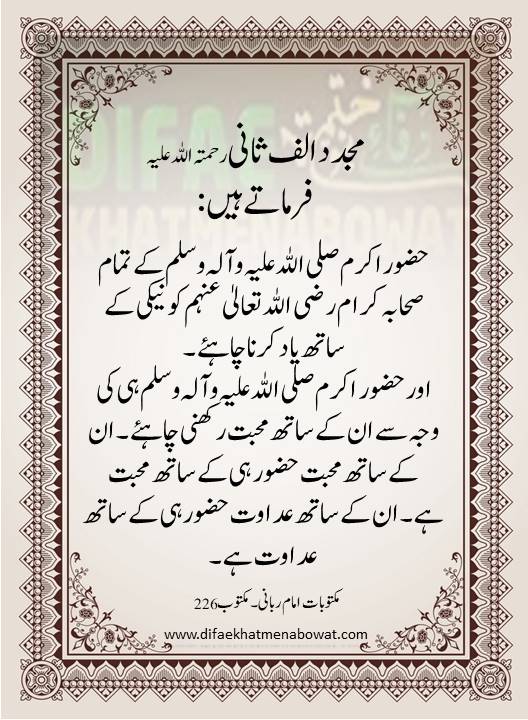 مجدد الف ثانی رحمتہ اللہ علیہ
فرماتے ہیں:
حضور اکرم صلی اللہ علیہ وآلہ وسلم کے تمام
صحابہ کرام رضی اللہ تعالیٰ عنہم کو نیکی کے
ساتھ یاد کرنا چاہئے۔
اور حضور اکرم صلی اللہ علیہ وآلہ وسلم ہی کی
وجہ سے ان کے ساتھ محبت رکھنی چاہئے۔ ان
کے ساتھ محبت حضور ہی کے ساتھ محبت
ہے۔ ان کے ساتھ عداوت حضور ہی کے ساتھ
عداوت ہے۔
مکتوبات امام ربانی۔ مکتوب 226
www.difaekhatmenabowat.com
DIFAE
KHATMENABOWAT